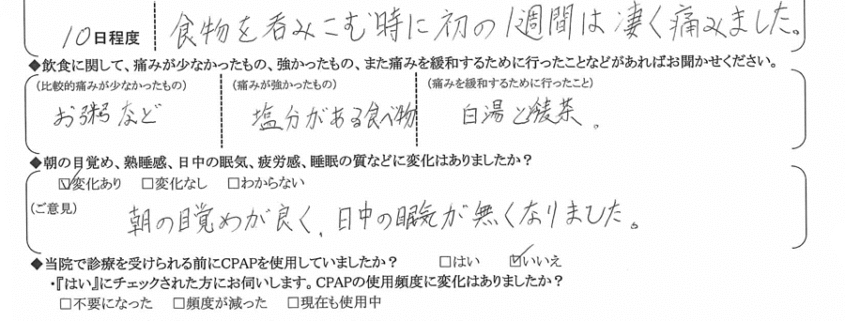 10日程度 食物を呑みこむ時に初の1週間は凄く痛みました。
◆飲食に関して、痛みが少なかったもの、強かったもの、また痛みを緩和するために行ったことなどがあればお聞かせください。
(比較的痛みが少なかったもの) (痛みが強かったもの) (痛みを緩和するために行ったこと)
お粥など 塩分がある食べ物 白湯と 茶。
◆朝の目覚め、熟睡感、日中の眠気、疲労感、睡眠の質などに変化はありましたか?
☑変化あり □変化なし □わからない
(ご意見)
朝の目覚めが良く、日中の眠気が無くなりました。
◆当院で診療を受けられる前にCPAPを使用していましたか? □はい ☑いいえ
・『はい』にチェックされた方にお伺いします。CPAPの使用頻度に変化はありましたか?
□不要になった □頻度が減った □現在も使用中